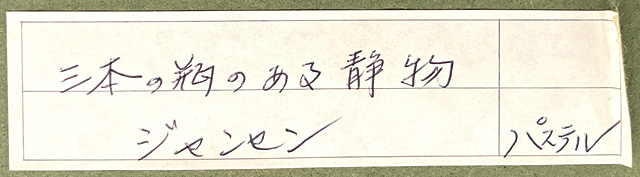 三本の瓶のある静物
ジャンセン
パステル